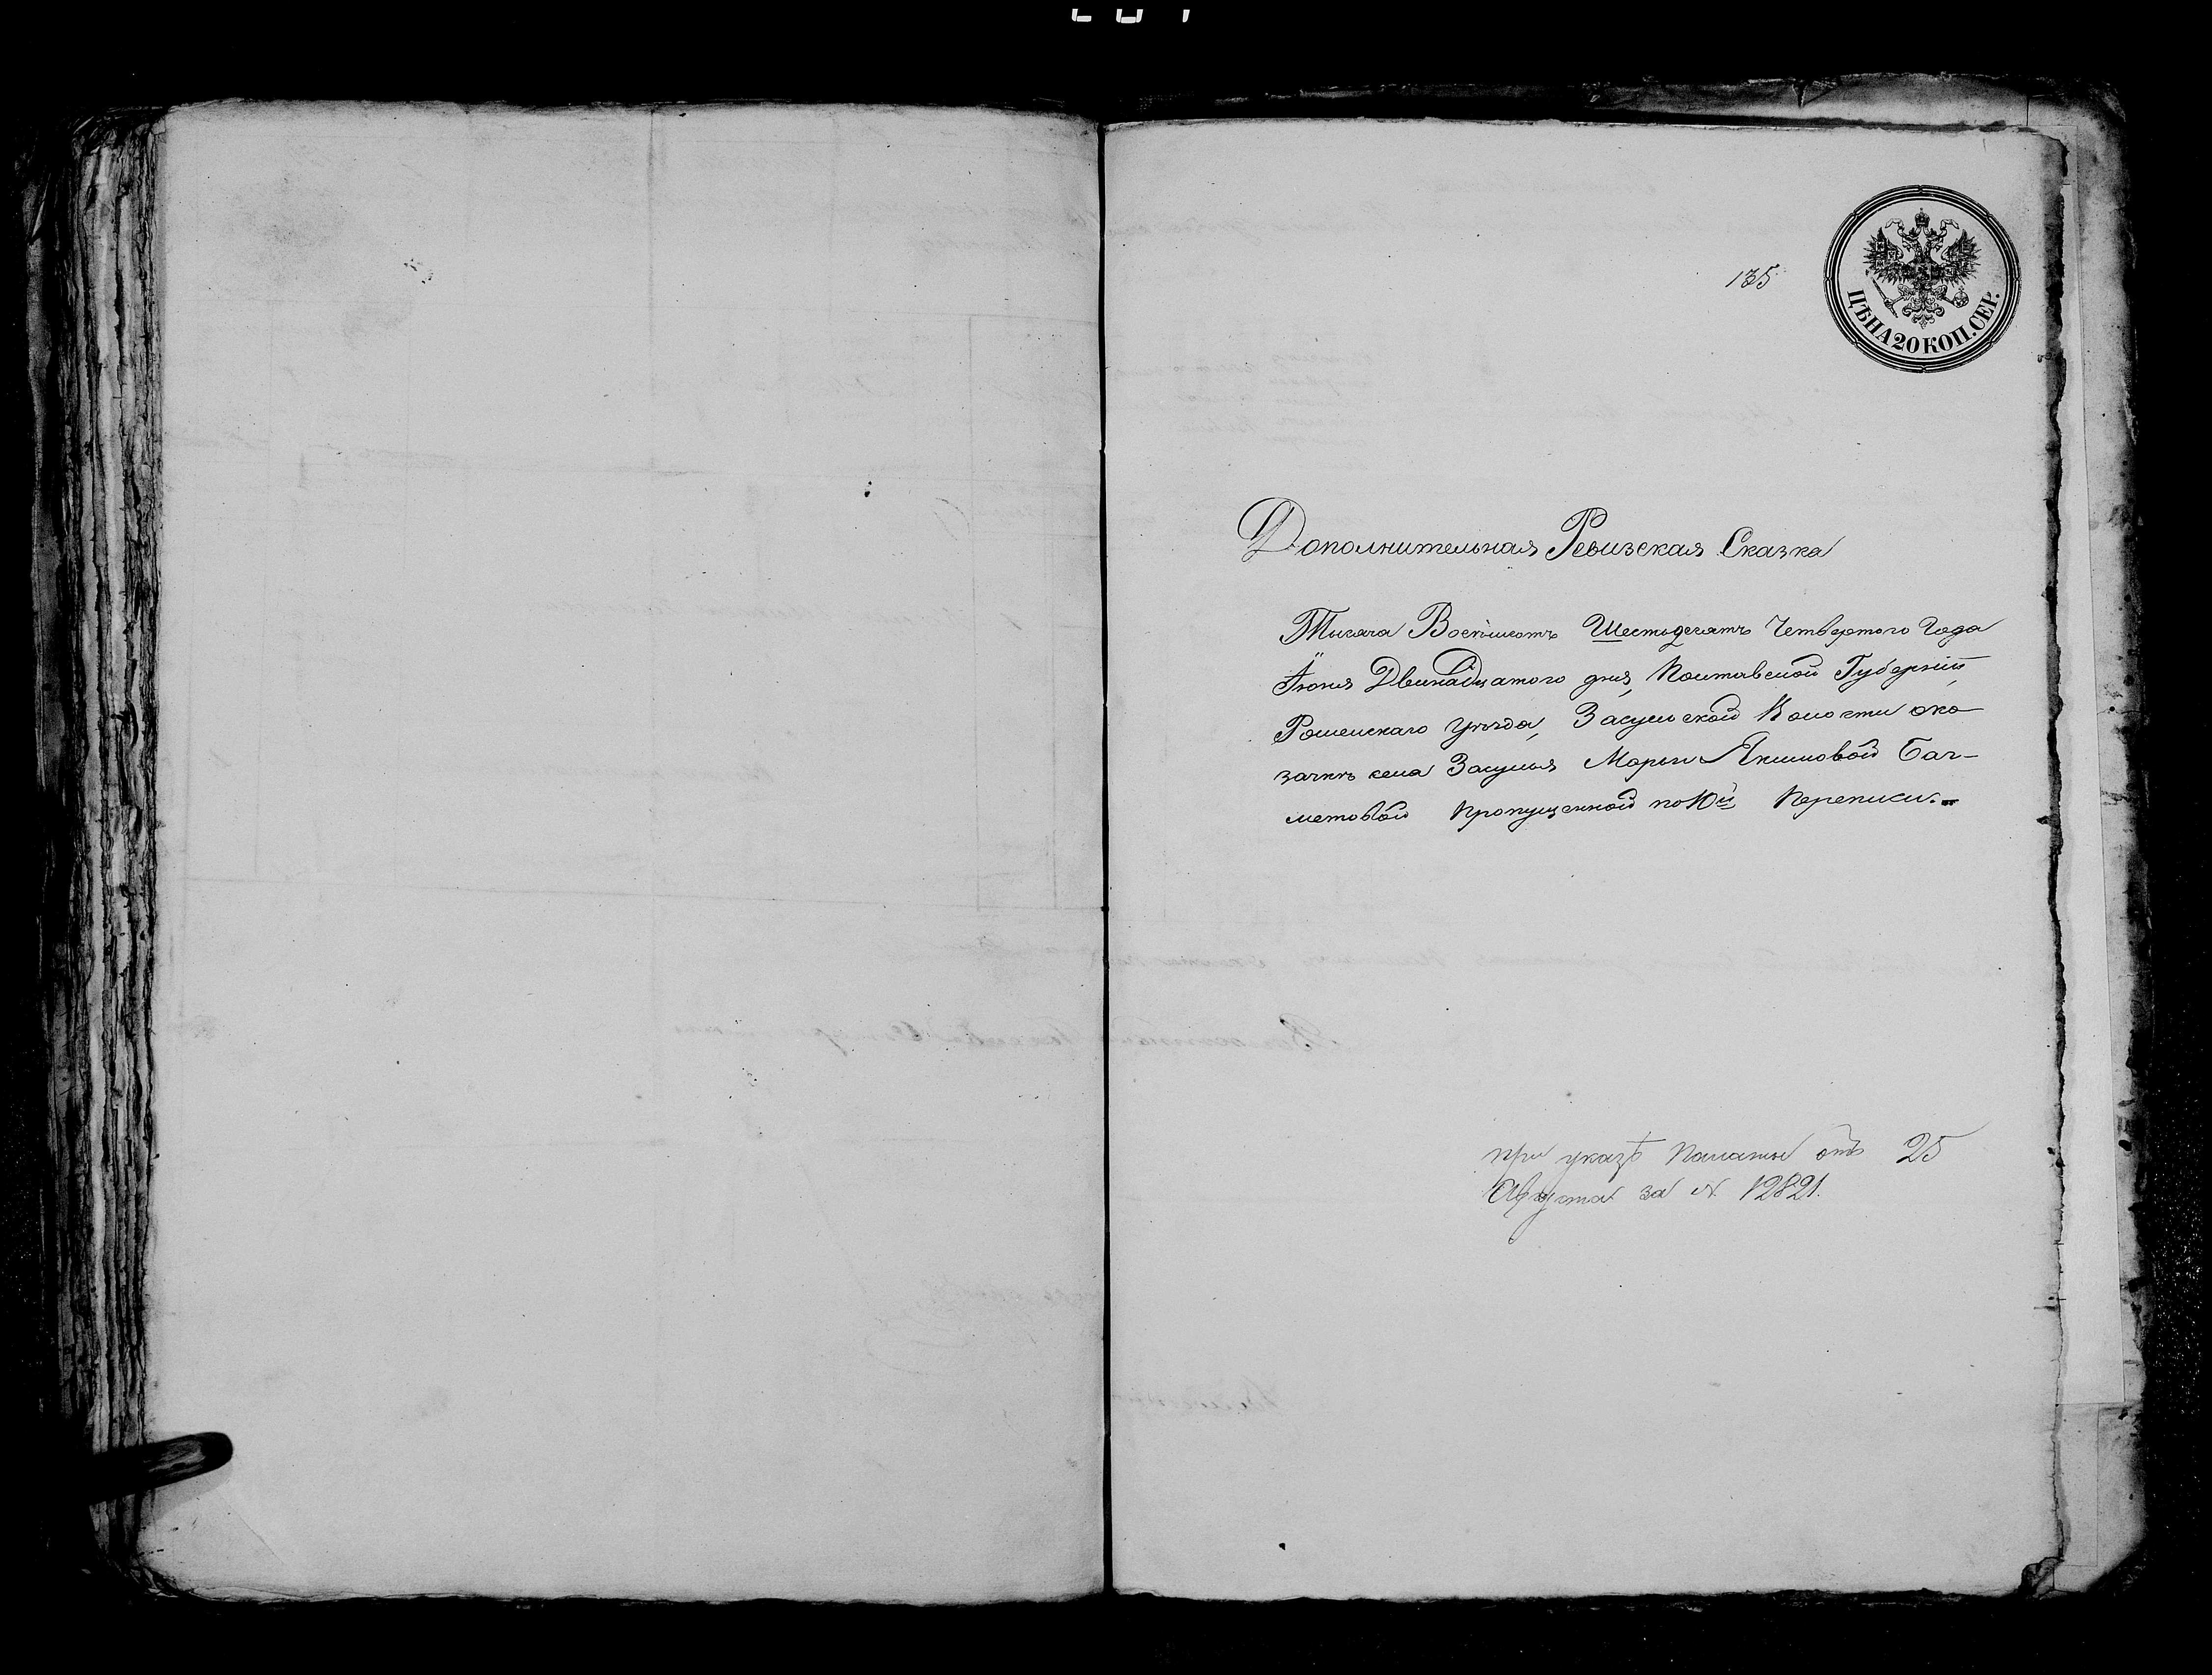 135
ЦѢНА 20 КОП. СЕР.
Дополнительная Ревизская Сказка
Тысяча Восѣмьсотъ Шестьдесятъ Четвертого Года
Іюня Двинадцатого дня, Полтавской Губерніи,
Роменскаго уѣзда, Засульской Волости о ко-
зачкѣ села Засулья Марьи Якимовой Баг-
метовой пропущенной по 10й переписи. -
при указѣ Палаты отъ 25
Августа за N 12821.